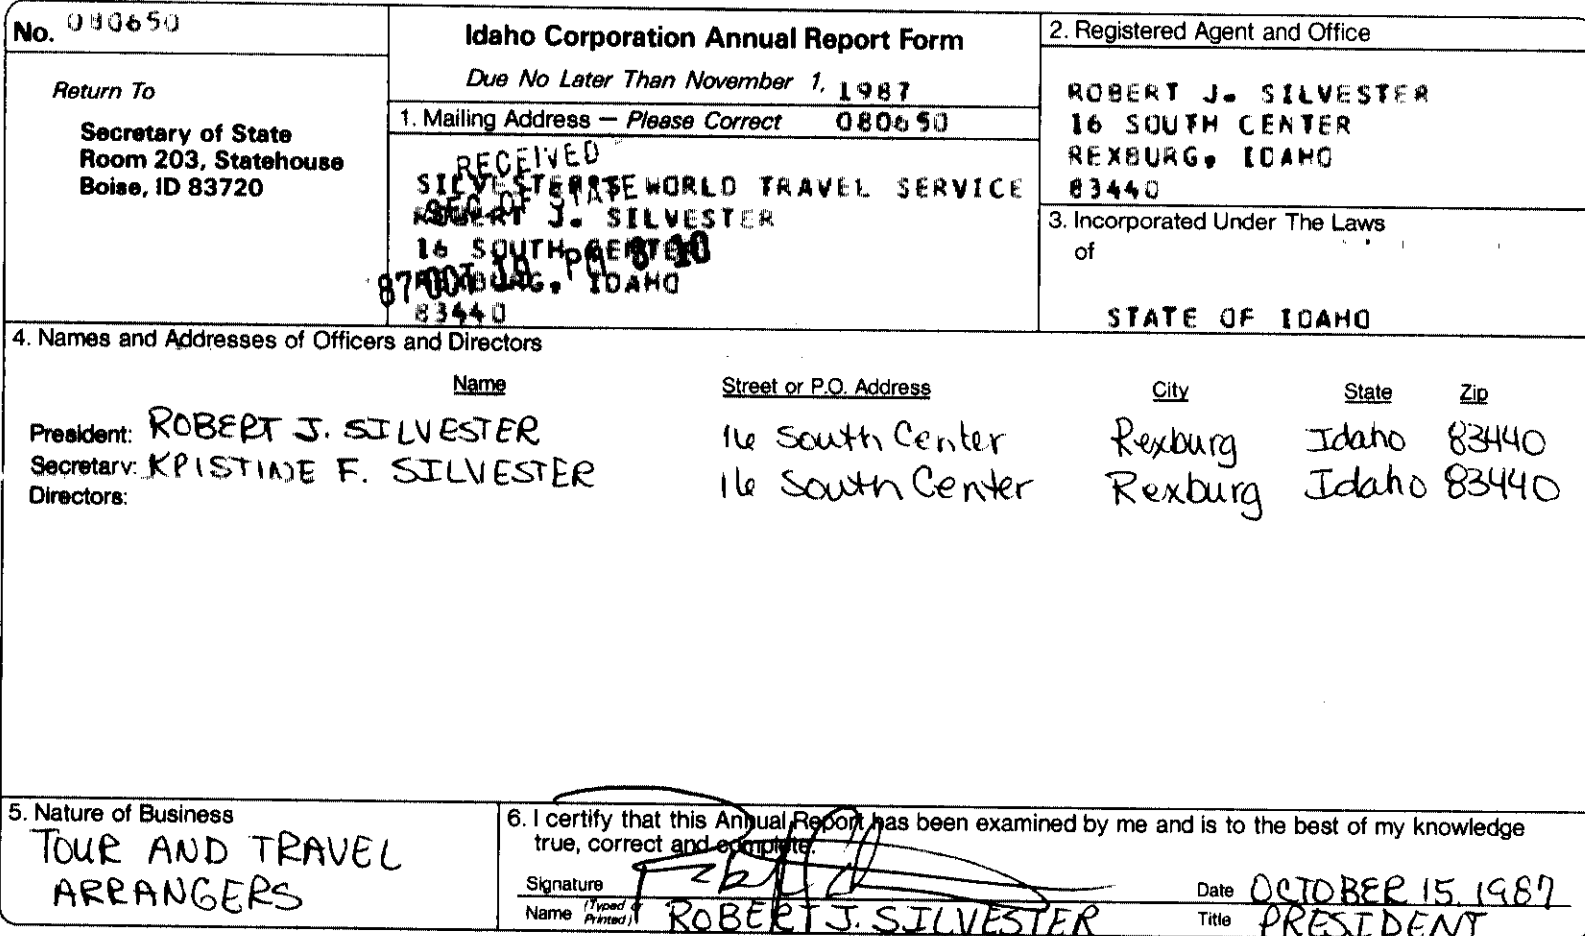 No. 080650
Idaho Corporation Annual Report Form
Due No Later Than November 1, 1987
Return To
Secretary of State
Room 203, Statehouse
Boise, ID 83720
1. Mailing Address — Please Correct 080650
RECEIVED
SEC. OF STATE
SILVESTER WORLD TRAVEL SERVICE
ROBERT J. SILVESTER
16 SOUTH CENTER
REXBURG, IDAHO
83440
87 OCT PM 8 10
2. Registered Agent and Office
ROBERT J. SILVESTER
16 SOUTH CENTER
REXBURG, IDAHO
83440
3. Incorporated Under The Laws
of
STATE OF IDAHO
4. Names and Addresses of Officers and Directors
Name Street or P.O. Address City State Zip
President: ROBERT J. SILVESTER 16 South Center Rexburg Idaho 83440
Secretary: KRISTINE F. SILVESTER 16 South Center Rexburg Idaho 83440
Directors:
5. Nature of Business
TOUR AND TRAVEL
ARRANGERS
6. I certify that this Annual Report has been examined by me and is to the best of my knowledge
true, correct and complete.
Signature Date OCTOBER 15, 1987
Name (Typed or Printed) ROBERT J. SILVESTER Title PRESIDENT